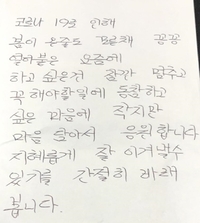 코로나 19로 인해
봄이 온줄도 모른채 꽁꽁
얼어붙은 요즘에
하고 싶은것 잠깐 멈추고
꼭 해야할일에 동참하고
싶은 마음에 작지만
마음 담아서 응원합니다
지혜롭게 잘 이겨낼수
있기를 간절히 바래
봅니다.